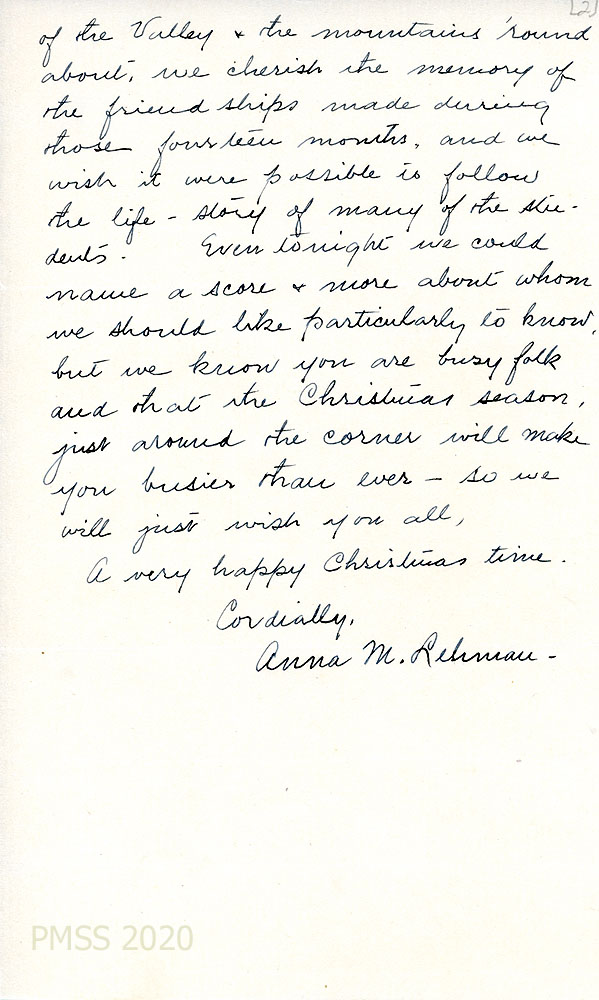 [2]
of the Valley & the mountains 'round
about, we cherish the memory of
the friendships made during
those fourteen months, and we
wish it were possible to follow
the life - story of many of the stu-
dents. Even tonight we could
name a score & more about whom
we should like particularly to know,
but we know you are busy folk
and that the Christmas season,
just around the corner will make
you busier than ever - so we
will just wish you all,
A very happy Christmas time.
Cordially,
Anna M. Lehman -
PMSS 2020